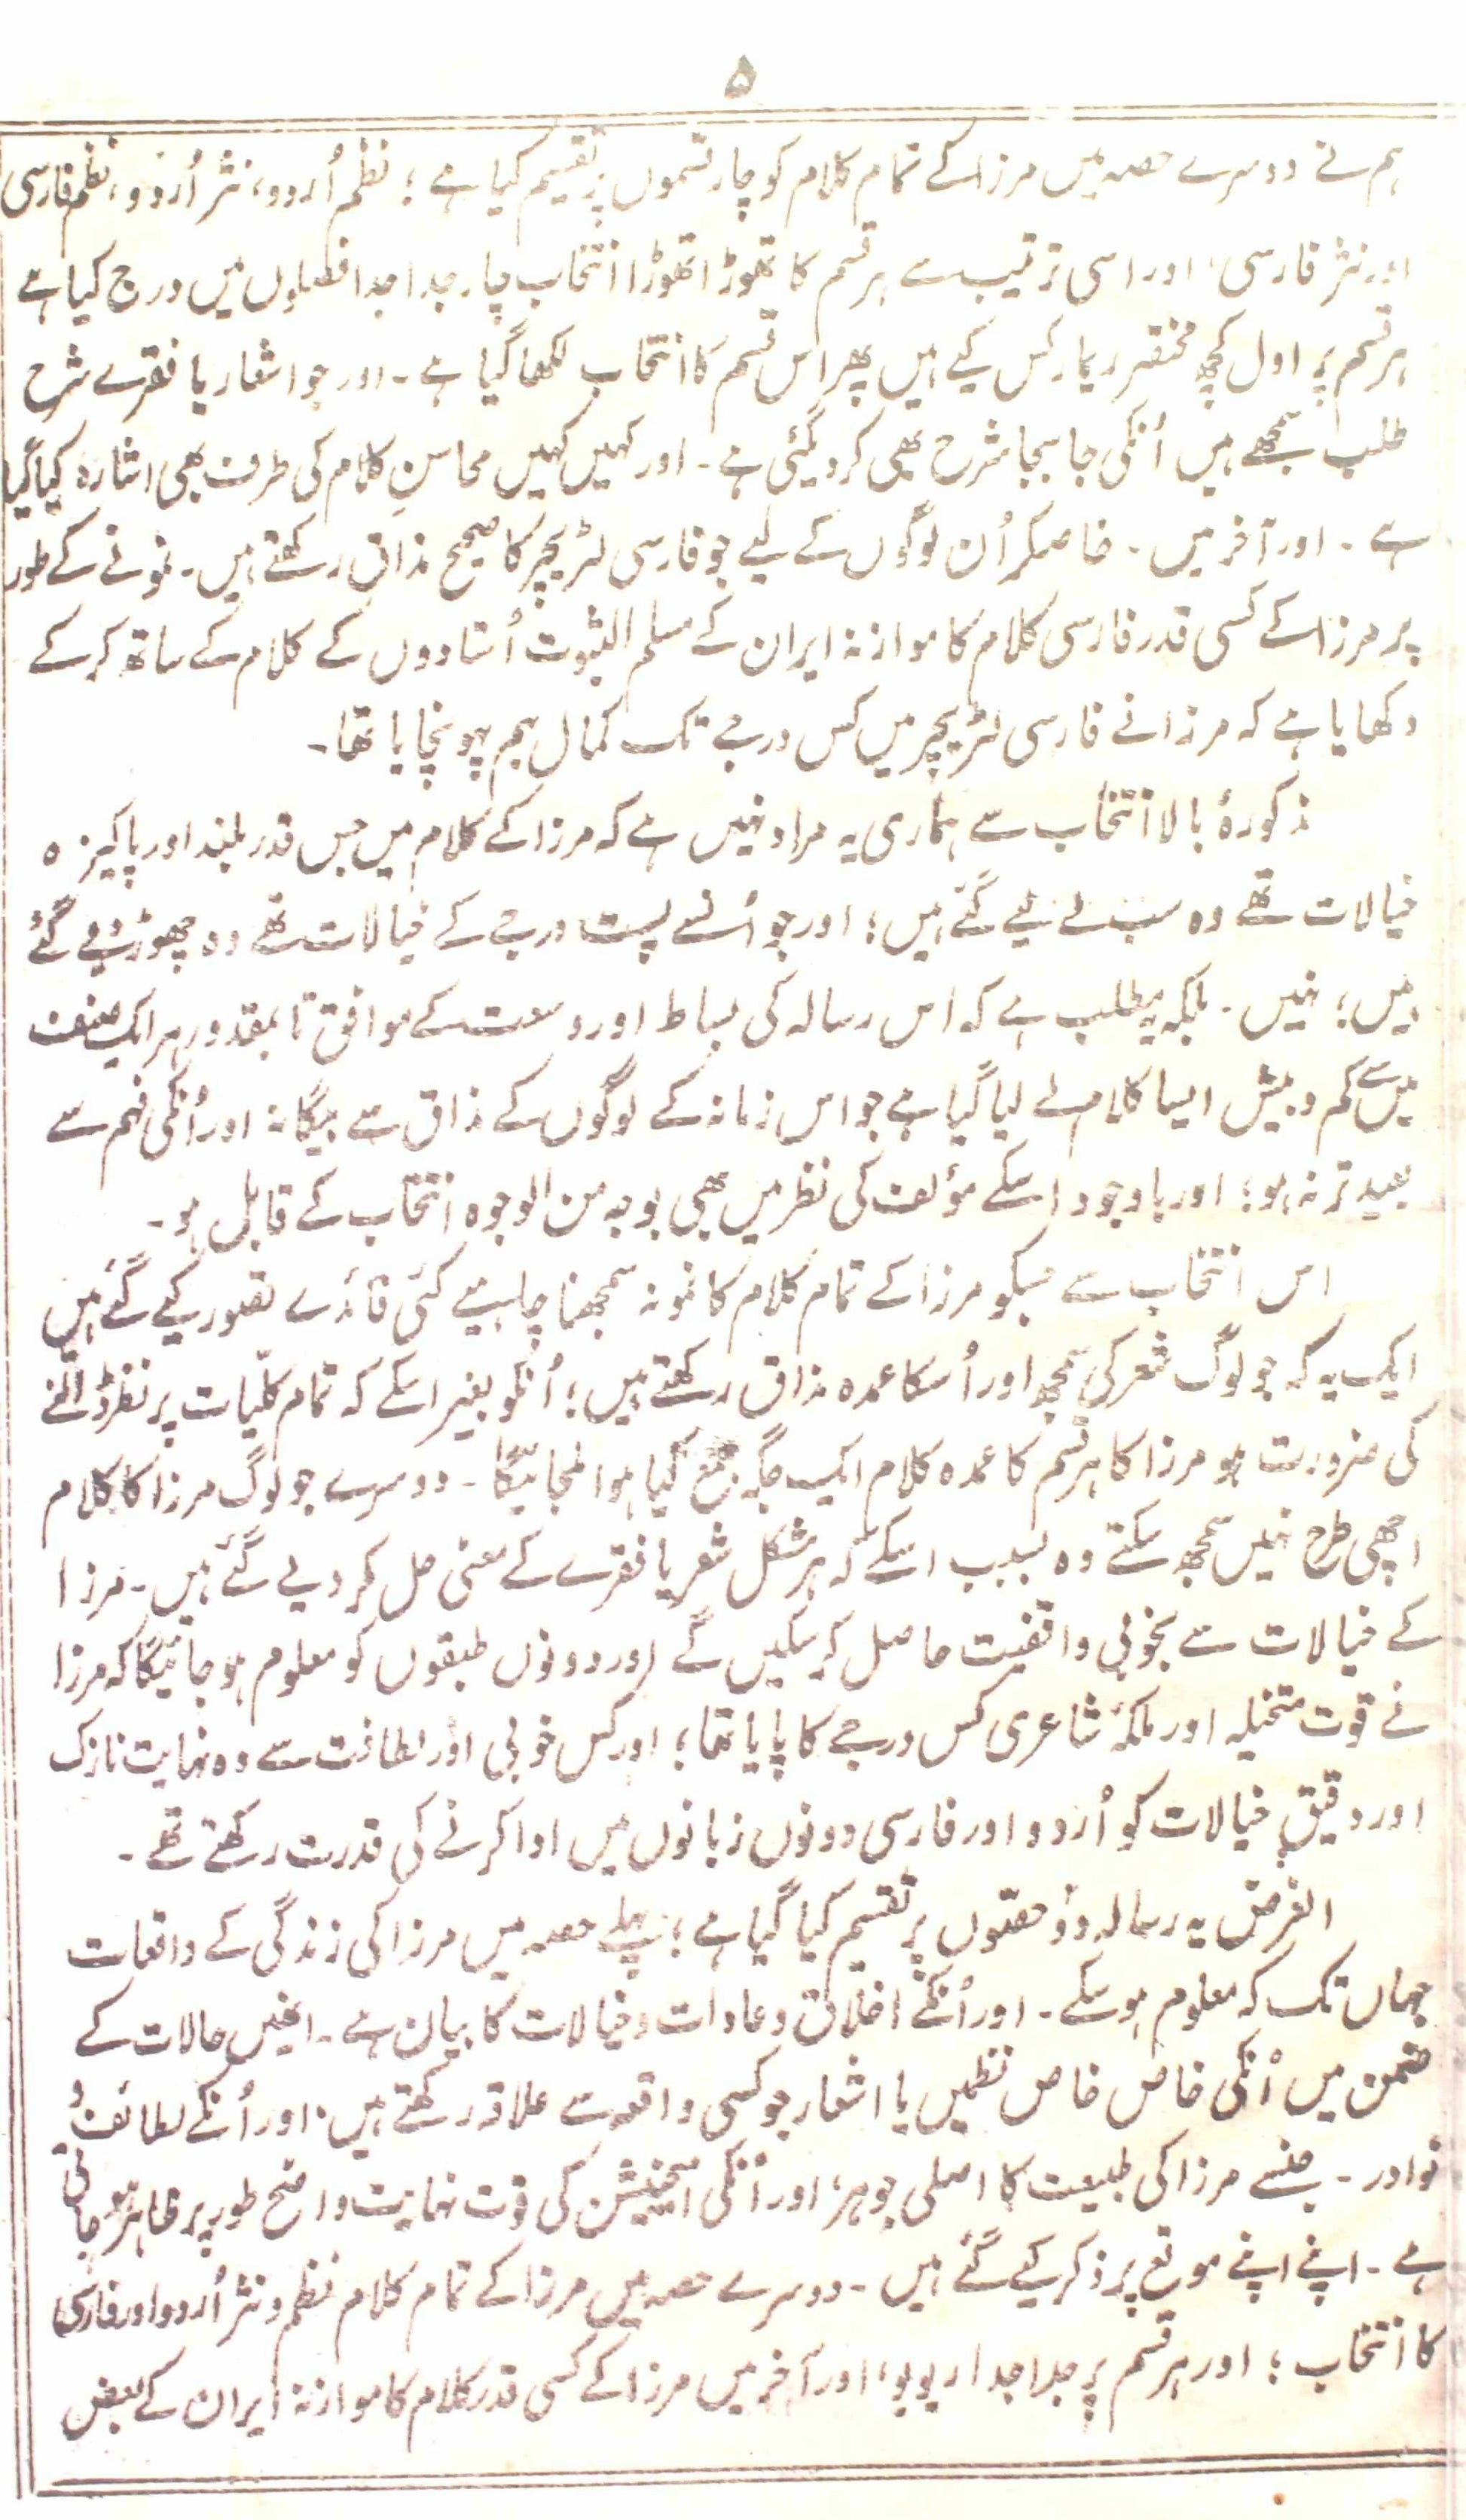 ۵
ہم نے دوسرے حصہ میں مرزا کے تمام کلام کو چار قسموں پر تقسیم کیا ہے؛ نظم اُردو، نثر اُردو، نظم فارسی
اور نثر فارسی، اور اسی ترتیب سے ہر قسم کا تھوڑا تھوڑا انتخاب چار جدا جدا فصلوں میں درج کیا ہے
ہر قسم پر اول کچھ مختصر ریمارکس کیے ہیں پھر اس قسم کا انتخاب لکھا گیا ہے۔ اور جو اشعار یا فقرے شرح
طلب سمجھے ہیں اُنکی جا بجا شرح بھی کر دیگئی ہے۔ اور کہیں کہیں محاسنِ کلام کی طرف بھی اشارہ کیا گیا
ہے۔ اور آخر میں۔ خاصکر اُن لوگوں کے لیے جو فارسی لٹریچر کا صحیح مذاق رکھتے ہیں۔ نمونے کے طور
پر مرزا کے کسی قدر فارسی کلام کا موازنہ ایران کے مسلم الثبوت اُستادوں کے کلام کے ساتھ کر کے
دکھایا ہے کہ مرزا نے فارسی لٹریچر میں کس درجے تک کمال بہم پہونچایا تھا۔
مذکورۂ بالا انتخاب سے ہماری یہ مراد نہیں ہے کہ مرزا کے کلام میں جس قدر بلند اور پاکیزہ
خیالات تھے وہ سب لے لیے گئے ہیں؛ اور جو اُنسے پست درجے کے خیالات تھے وہ چھوڑ دیے گئے
ہیں؛ نہیں۔ بلکہ یہ مطلب ہے کہ اس رسالہ کی بساط اور وسعت کے موافق تا بمقدور ہر ایک صنف
میں سے کم و بیش ایسا کلام لے لیا گیا ہے جو اس زمانہ کے لوگوں کے مذاق سے بیگانہ اور اُنکی فہم سے
بعید تر نہ ہو؛ اور باوجود اسکے مؤلف کی نظر میں بھی بوجہ من الوجوہ انتخاب کے قابل ہو۔
اس انتخاب سے جسکو مرزا کے تمام کلام کا نمونہ سمجھنا چاہیے کئی فائدے تصور کیے گئے ہیں
ایک یہ کہ جو لوگ شعر کی سمجھ اور اُسکا عمدہ مذاق رکھتے ہیں؛ اُنکو بغیر اسکے کہ تمام کلّیات پر نظر ڈالنے
کی ضرورت ہو مرزا کا ہر قسم کا عمدہ کلام ایک جگہ جمع کیا ہوا ملجائیگا۔ دوسرے جو لوگ مرزا کا کلام
اچھی طرح نہیں سمجھ سکتے وہ بسبب اسکے کہ ہر مشکل شعر یا فقرے کے معنی حل کر دیے گئے ہیں۔ مرزا
کے خیالات سے بخوبی واقفیت حاصل کر سکیں گے اور دونوں طبقوں کو معلوم ہو جائیگا کہ مرزا
نے قوت متخیلہ اور ملکۂ شاعری کس درجے کا پایا تھا؛ اور کس خوبی اور لطافت سے وہ نہایت نازک
اور دقیق خیالات کو اُردو اور فارسی دونوں زبانوں میں ادا کرنے کی قدرت رکھتے تھے۔
الغرض یہ رسالہ دو حصّوں پر تقسیم کیا گیا ہے؛ پہلے حصہ میں مرزا کی زندگی کے واقعات
جہاں تک کہ معلوم ہو سکے۔ اور اُنکے اخلاق و عادات و خیالات کا بیان ہے۔ انھیں حالات کے
ضمن میں اُنکی خاص خاص نظمیں یا اشعار جو کسی واقعہ سے علاقہ رکھتے ہیں، اور اُنکے لطائف و
نوادر۔ جنسے مرزا کی طبیعت کا اصلی جوہر، اور اُنکی امیجنیشن کی قوت نہایت واضح طور پر ظاہر ہو جاتی
ہے۔ اپنے اپنے موقع پر ذکر کیے گئے ہیں۔ دوسرے حصہ میں مرزا کے تمام کلام نظم و نثر اُردو اور فارسی
کا انتخاب؛ اور ہر قسم پر جدا جدا ریویو، اور آخر میں مرزا کے کسی قدر کلام کا موازنہ ایران کے بعض